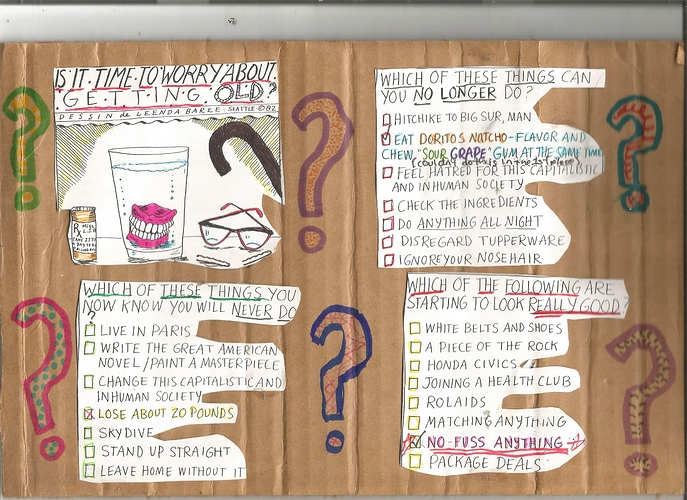 IS IT TIME TO WORRY ABOUT
GETTING OLD?
DESSIN de LEENDA BAREE - SEATTLE © 82
WHICH OF THESE THINGS CAN
YOU NO LONGER DO?
HITCHIKE TO BIG SUR, MAN
EAT DORITOS NATCHO-FLAVOR AND
CHEW "SOUR GRAPE" GUM AT THE SAME TIME
(couldn't do this in the 1st place)
FEEL HATRED FOR THIS CAPITALISTIC
AND INHUMAN SOCIETY
CHECK THE INGREDIENTS
DO ANYTHING ALL NIGHT
DISREGARD TUPPERWARE
IGNORE YOUR NOSE HAIR
WHICH OF THESE THINGS YOU
NOW KNOW YOU WILL NEVER DO
?
LIVE IN PARIS
WRITE THE GREAT AMERICAN
NOVEL/PAINT A MASTERPIECE
CHANGE THIS CAPITALISTIC AND
INHUMAN SOCIETY
LOSE ABOUT 20 POUNDS
SKYDIVE
STAND UP STRAIGHT
LEAVE HOME WITHOUT IT
WHICH OF THE FOLLOWING ARE
STARTING TO LOOK REALLY GOOD?
WHITE BELTS AND SHOES
A PIECE OF THE ROCK
HONDA CIVICS
JOINING A HEALTH CLUB
ROLAIDS
MATCHING ANYTHING
NO-FUSS ANYTHING
PACKAGE DEALS